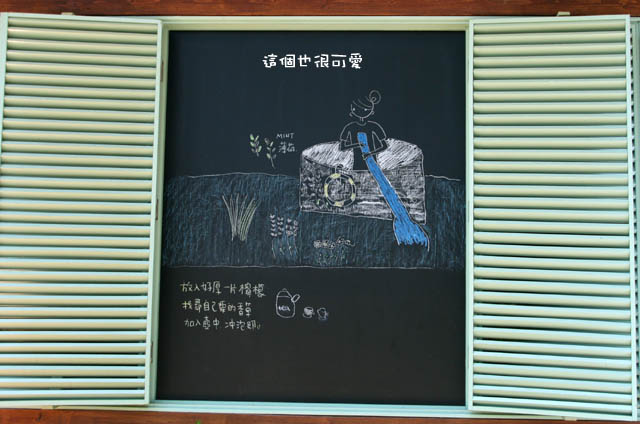 這個也很可愛
MINT
薄荷
放入好厚一片檸檬
找尋自己愛的香草
加入壺中 沖泡吧。